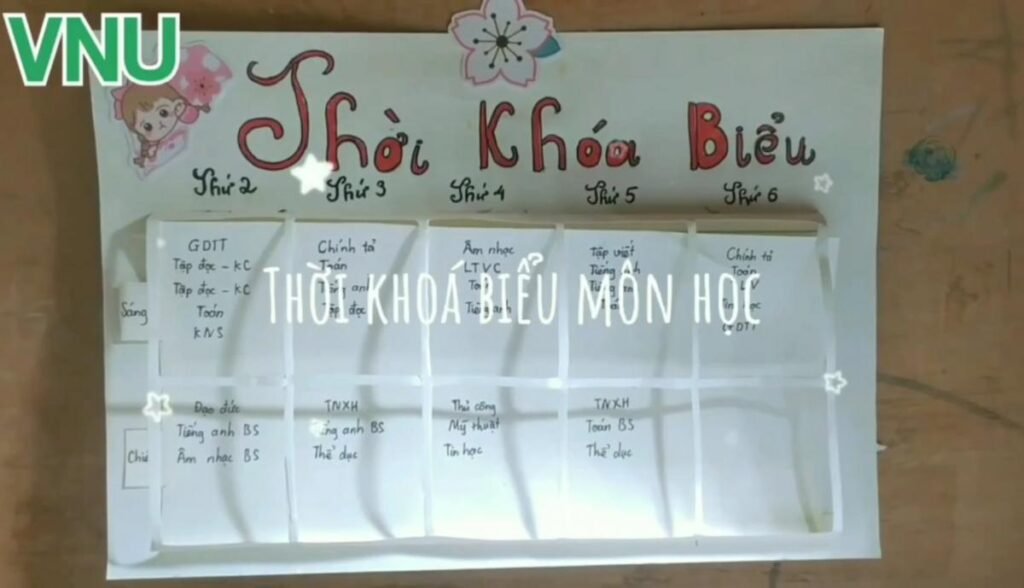 VNU
Thời Khóa Biểu
Thứ 2 Thứ 3 Thứ 4 Thứ 5 Thứ 6
Sáng
GDTT
Tập đọc - KC
Tập đọc - KC
Toán
KNS
Chính tả
Toán
Tiếng anh
Tập đọc
Âm nhạc
LTVC
Toán
Tiếng anh
Tập viết
Tiếng anh
Chính tả
Toán
Tin học
GDTT
THỜI KHOÁ BIỂU MÔN HỌC
Đạo đức
Tiếng anh BS
Âm nhạc BS
TNXH
Tiếng anh BS
Thể dục
Thủ công
Mỹ thuật
Tin học
TNXH
Toán BS
Thể dục